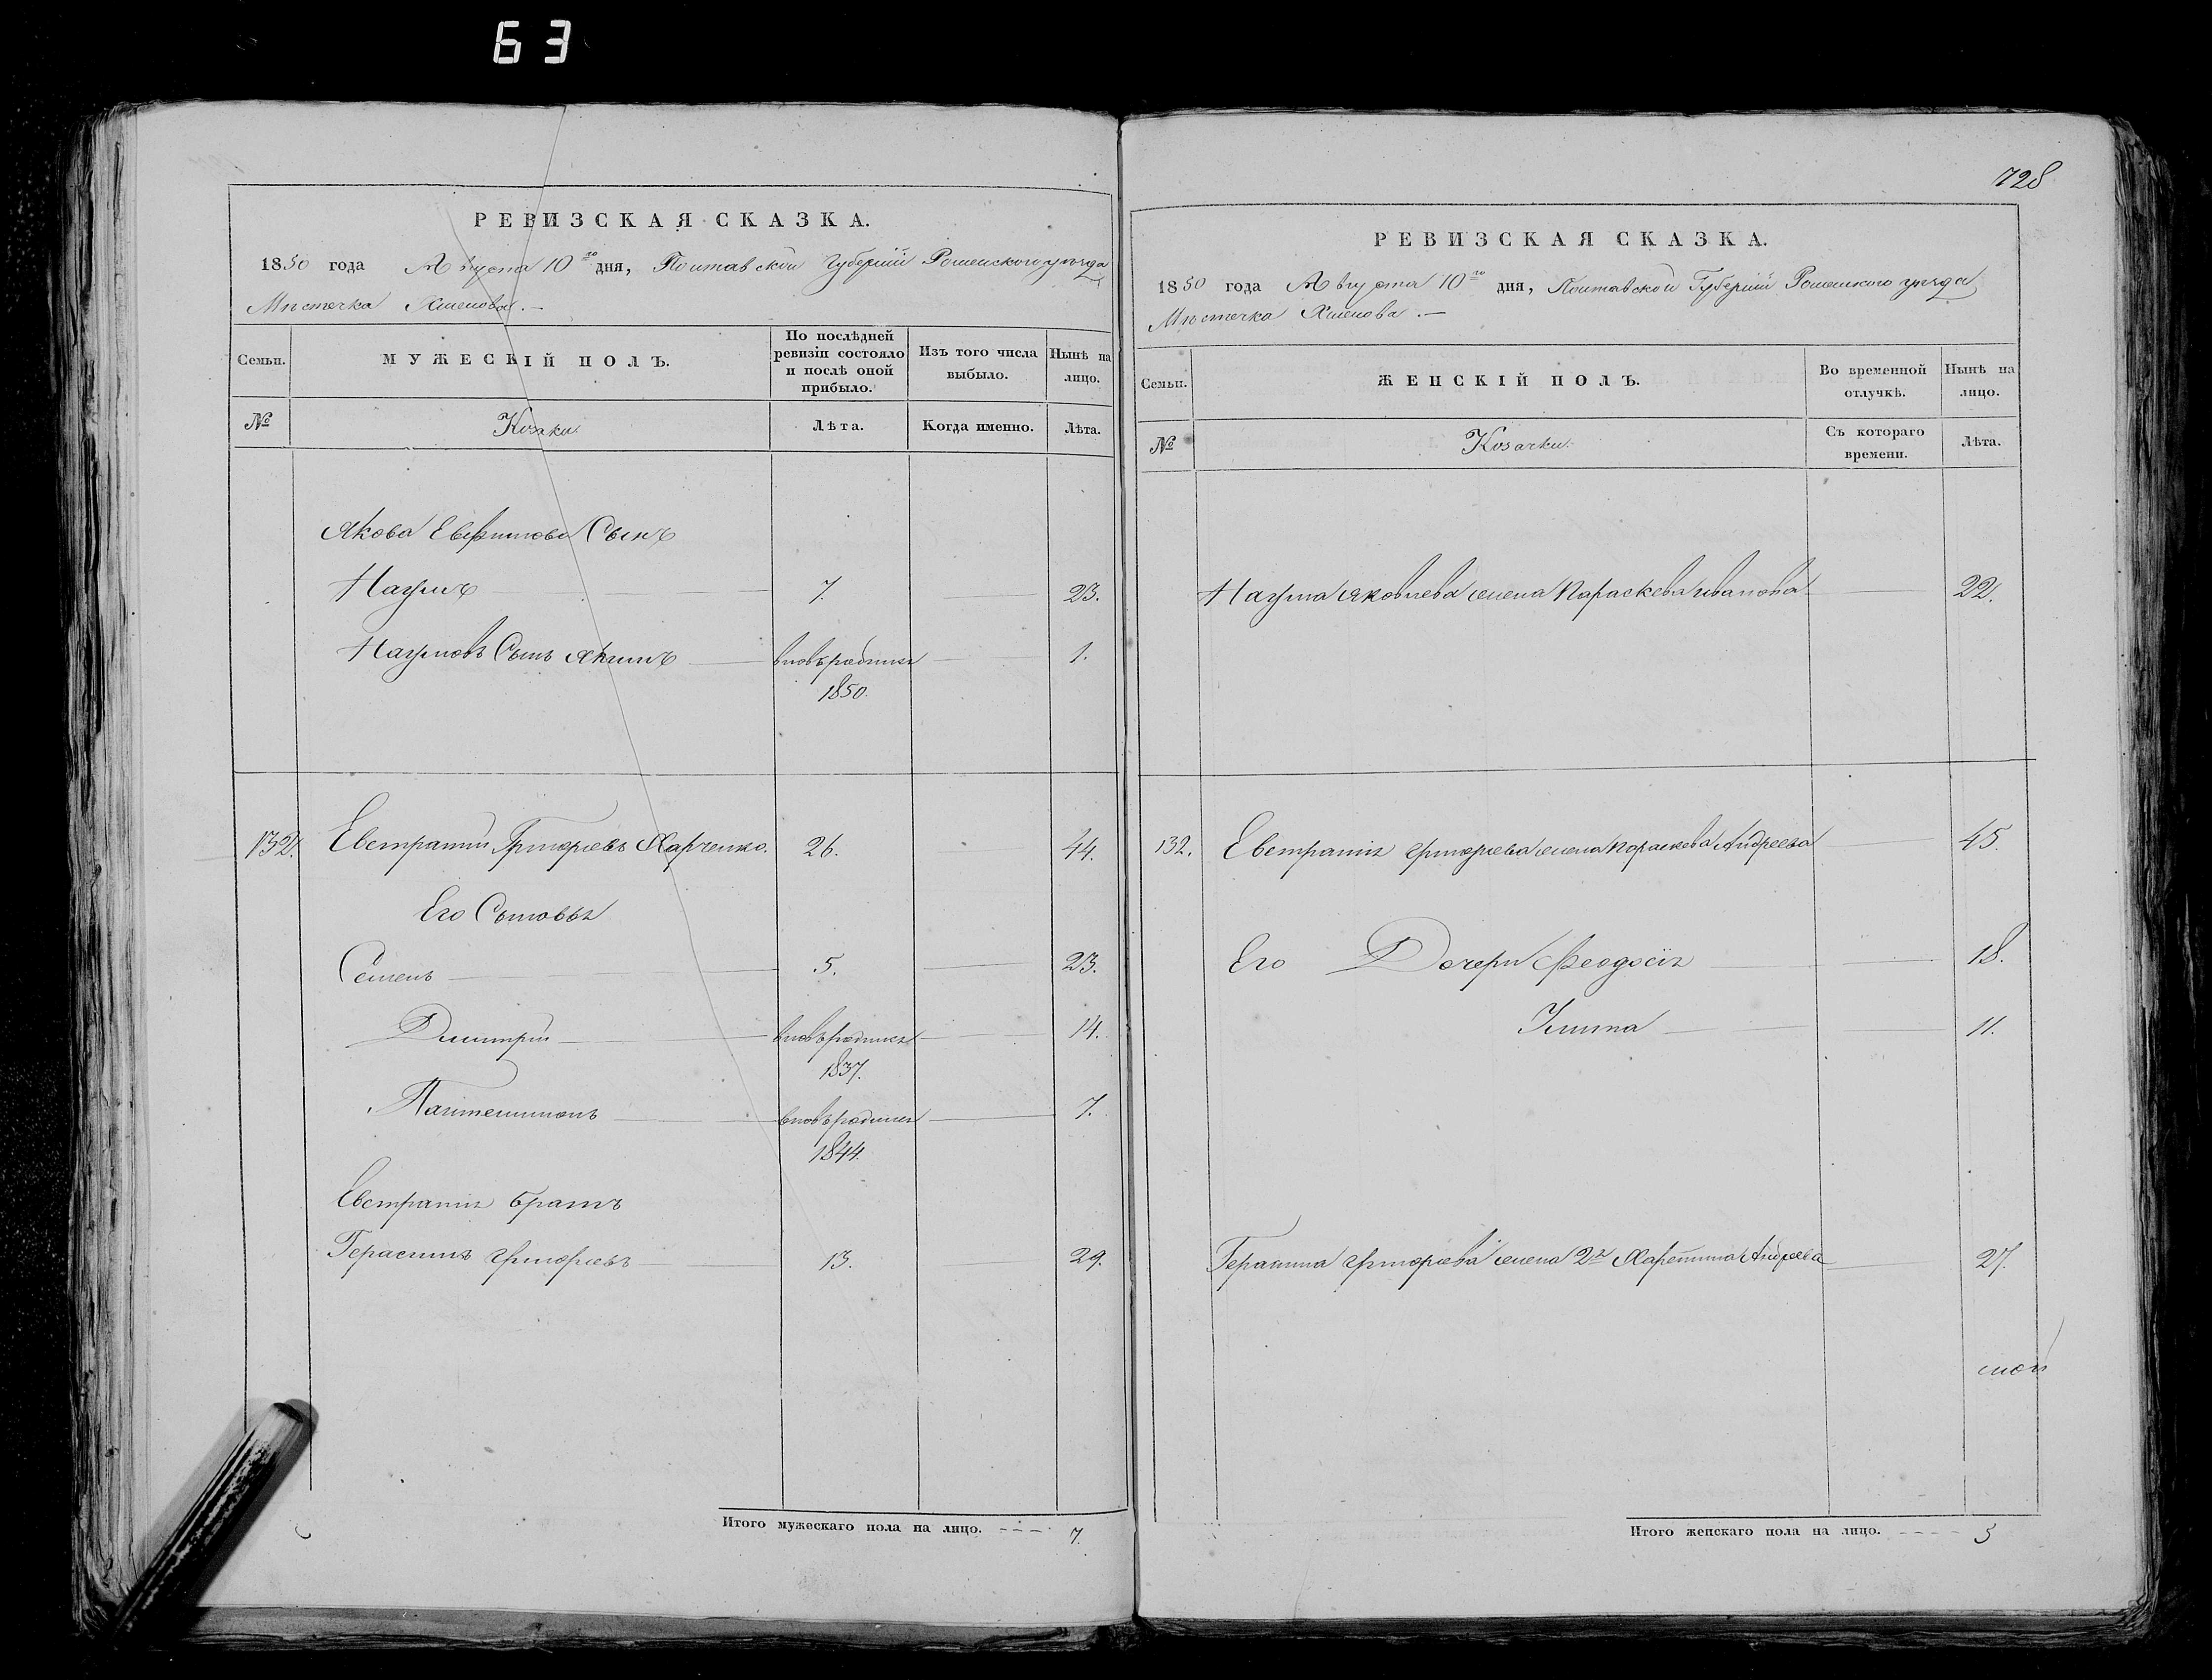 63
РЕВИЗСКАЯ СКАЗКА.
1850 года Августа 10го дня, Полтавской Губерніи Роменского уѣзда
Мѣстечка Хмелова.—
Семьи.
МУЖЕСКІЙ ПОЛЪ.
По послѣдней ревизіи состояло и послѣ оной прибыло.
Изъ того числа выбыло.
Нынѣ на лицо.
№
Козаки.
Лѣта.
Когда именно.
Лѣта.
Якова Евфимова Сынъ
Наумъ 7. 23.
Наумовъ Сынъ Якимъ вновьродился 1.
1850.
132. Евстратій Григорьевъ Харченко. 26. 44.
Его Сыновья
Семенъ 5. 23.
Дмитрій вновьродился 14.
1837.
Пантелимонъ вновьродился 7.
1844.
Евстратія братъ
Герасимъ Григорьевъ 13. 29.
Итого мужескаго пола на лицо. 7.
728
РЕВИЗСКАЯ СКАЗКА.
1850 года Августа 10го дня, Полтавской Губерніи Роменского уѣзда
Мѣстечка Хмелова.—
Семьи.
ЖЕНСКІЙ ПОЛЪ.
Во временной отлучкѣ.
Нынѣ на лицо.
№
Козачки.
Съ котораго времени.
Лѣта.
Наума Яковлева жена Параскева Иванова 22.
132. Евстратія Григорьева жена Параскева Андреева 45.
Его Дочери Феодосія 18.
Улита 11.
Герасима Григорьева жена 2я Харитина Андреева 27.
Итого женскаго пола на лицо. 5